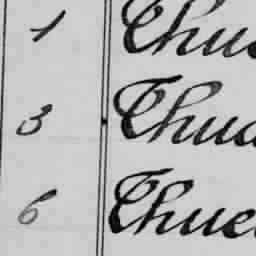 1 Thus
3 Thua
6 Thue